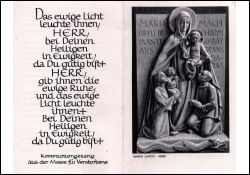 Das ewige Licht
leuchte ihnen,
HERR,
bei Deinen
Heiligen
in Ewigkeit,
da Du gütig bist+
HERR,
gib ihnen die
ewige Ruhe,
und das ewige
Licht leuchte
ihnen+
Bei Deinen
Heiligen
in Ewigkeit,
da Du gütig bist+
Kommuniongesang
aus der Messe für Verstorbene
MARIA MACH
MANTE